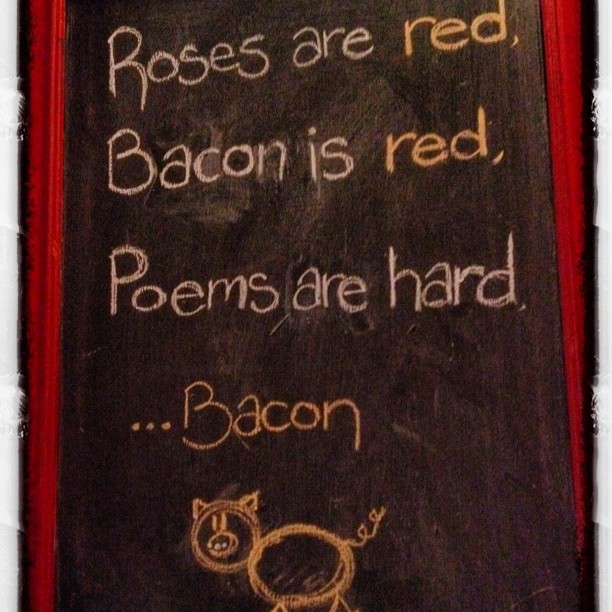 Roses are red,
Bacon is red,
Poems are hard.
...Bacon